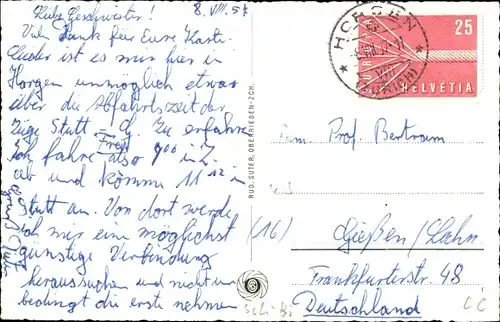 8. VIII. 57
Liebe Geschwister!
Viel Dank für Eure Karte.
Leider ist es mir hier in
Horgen unmöglich etwas
über die Abfahrtszeit der
Züge Stutt - G. zu erfahren
Ich fahre also Frei 9⁰⁰ in Z.
ab und komme 11¹² in
Stutt an. Von dort werde
ich mir eine möglichst
günstige Verbindung
heraussuchen und nicht un
bedingt die erste nehmen
Gruß
RUD. SUTER, OBERRIEDEN-ZCH.
HORGEN
(ZÜRICH)
EUROPA
25
HELVETIA
Fam. Prof. Bertram
(16) Gießen/Lahn
Frankfurterstr. 48
Deutschland